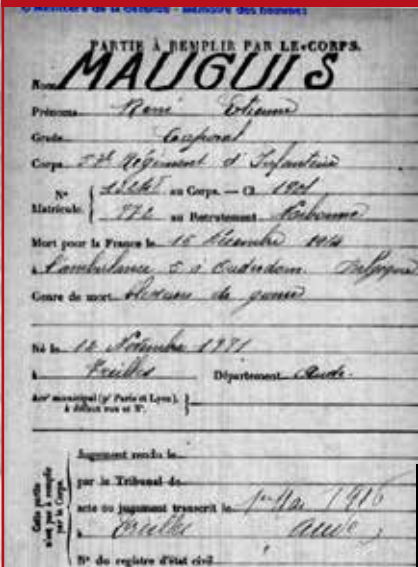 © Ministère de la défense - Mémoire des hommes
PARTIE À REMPLIR PAR LE CORPS.
Nom MAUGUIS
Prénoms René Etienne
Grade Caporal
Corps Régiment d'Infanterie
N° Matricule. { au Corps. — Cl. 1901
au Recrutement Narbonne
Mort pour la France le 15 Décembre 1914
à l'ambulance 5 à Ouderdom Belgique
Genre de mort Blessures de guerre
Né le 12 Novembre
à Treilles Département Aude
Arrt municipal (pr Paris et Lyon), à défaut rue et N°.
Jugement rendu le
par le Tribunal de
acte ou jugement transcrit le 1er Mai 1916
à Treilles Aude
N° du registre d'état civil
Cette partie n'est pas à remplir par le Corps.